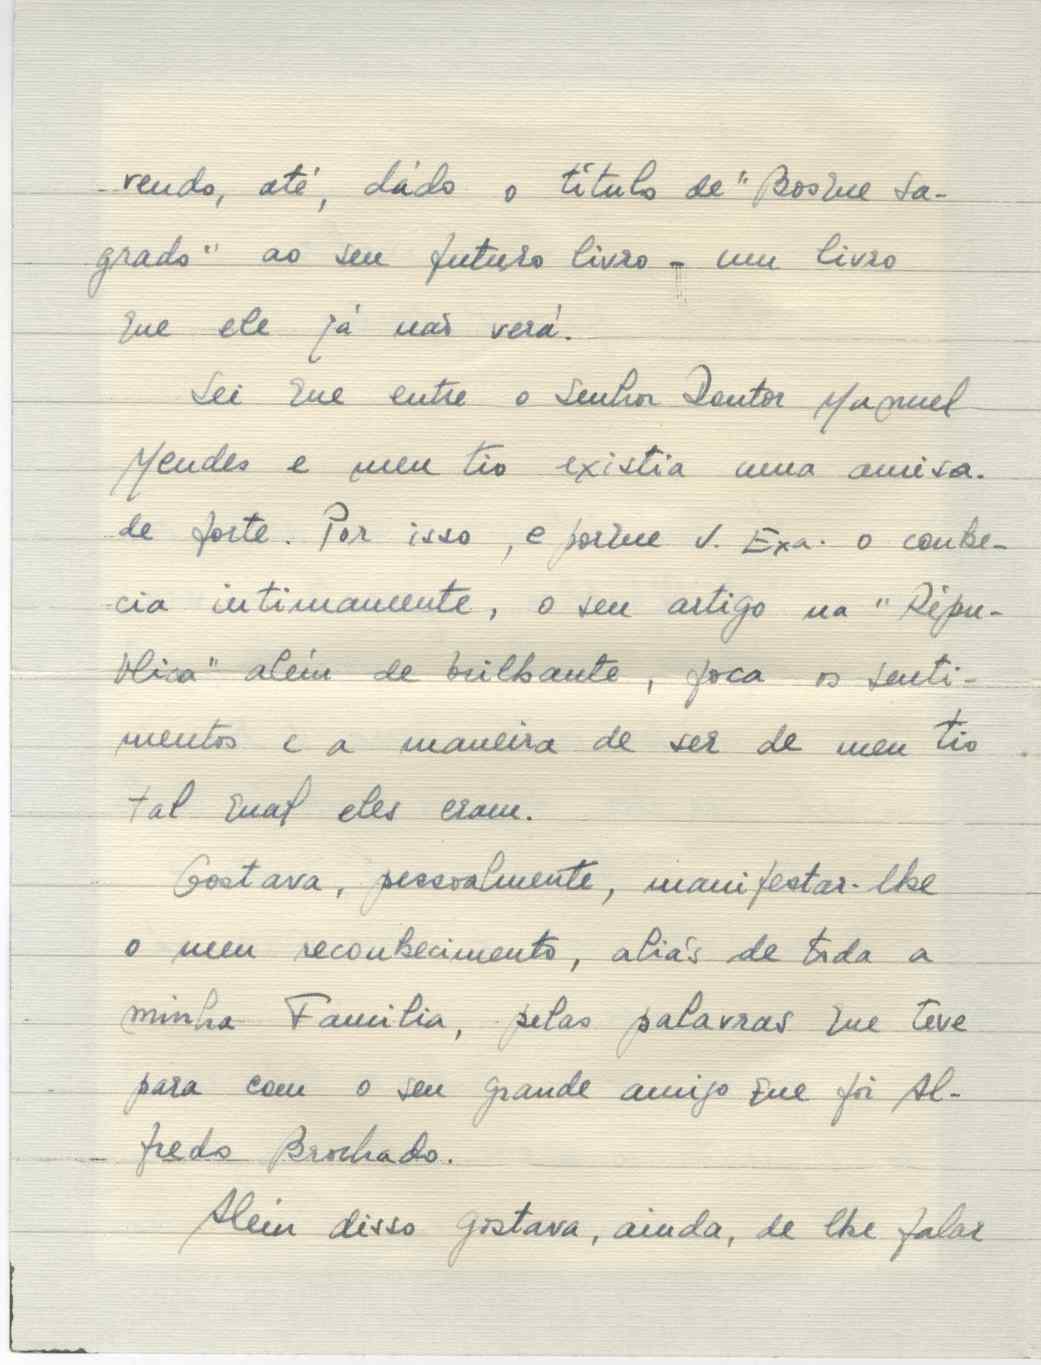 rendo, até, dádo o título de "Bosque Sa-
grado" ao seu futuro livro - um livro
que ele já não verá.
Sei que entre o Senhor Doutor Manuel
Mendes e meu tio existia uma amisa-
de forte. Por isso, e porque V. Exa. o conhe-
cia intimamente, o seu artigo na "Répu-
blica" além de brilhante, foca os senti-
mentos e a maneira de ser de meu tio
tal qual eles eram.
Gostava, pessoalmente, manifestar-lhe
o meu reconhecimento, aliás de toda a
minha Familia, pelas palavras que teve
para com o seu grande amigo que foi Al-
fredo Brochado.
Além disso gostava, ainda, de lhe falar